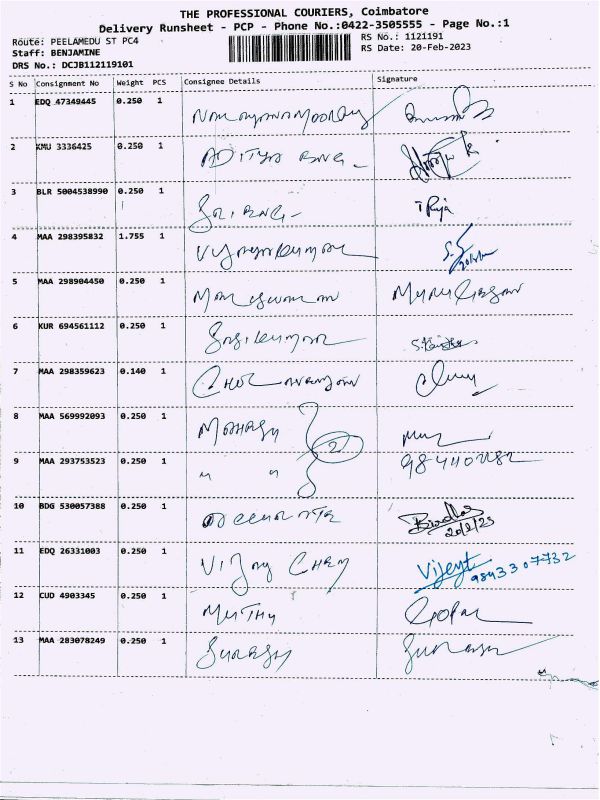 THE PROFESSIONAL COURIERS, Coimbatore
Delivery Runsheet - PCP - Phone No.:0422-3505555 - Page No.:1
Route: PEELAMEDU ST PC4 RS No.: 1121191
Staff: BENJAMINE RS Date: 20-Feb-2023
DRS No.: DCJB112119101
S No Consignment No Weight PCS Consignee Details Signature
1 EDQ 47349445 0.250 1
2 KMU 3336425 0.250 1 ADITYA ENG -
3 BLR 5004538990 0.250 1 SRI ENG -
4 MAA 298395832 1.755 1 VIJAYAKUMAR
5 MAA 298904450 0.250 1
6 KUR 694561112 0.250 1 SASIKUMAR
7 MAA 298359623 0.140 1
8 MAA 569992093 0.250 1 MAHESH 2
9 MAA 293753523 0.250 1 " "
10 BDG 530057388 0.250 1 20/2/23
11 EDQ 26331003 0.250 1 VIJAY CHEM 9843307732
12 CUD 4903345 0.250 1 MUTHU GOPAL
13 MAA 283078249 0.250 1 SURESH